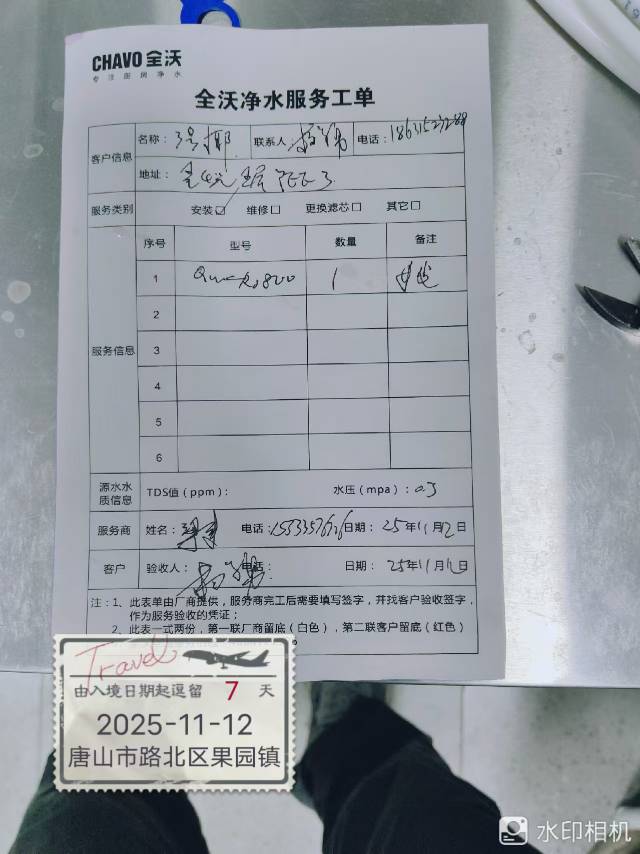 CHAVO 全沃
专注厨房净水
全沃净水服务工单
客户信息 名称： 联系人 电话：
地址：
服务类别 安装☑ 维修□ 更换滤芯□ 其它□
服务信息 序号 型号 数量 备注
1 1
2
3
4
5
6
源水水质信息 TDS值（ppm）： 水压（mpa）：0.3
服务商 姓名： 电话： 日期：25年11月12日
客户 验收人： 电话： 日期：25年11月12日
注：1、此表单由厂商提供，服务商完工后需要填写签字，并找客户验收签字，
作为服务验收的凭证；
2、此表一式两份，第一联厂商留底（白色），第二联客户留底（红色）
Travel
由入境日期起逗留 7 天
2025-11-12
唐山市路北区果园镇
水印相机